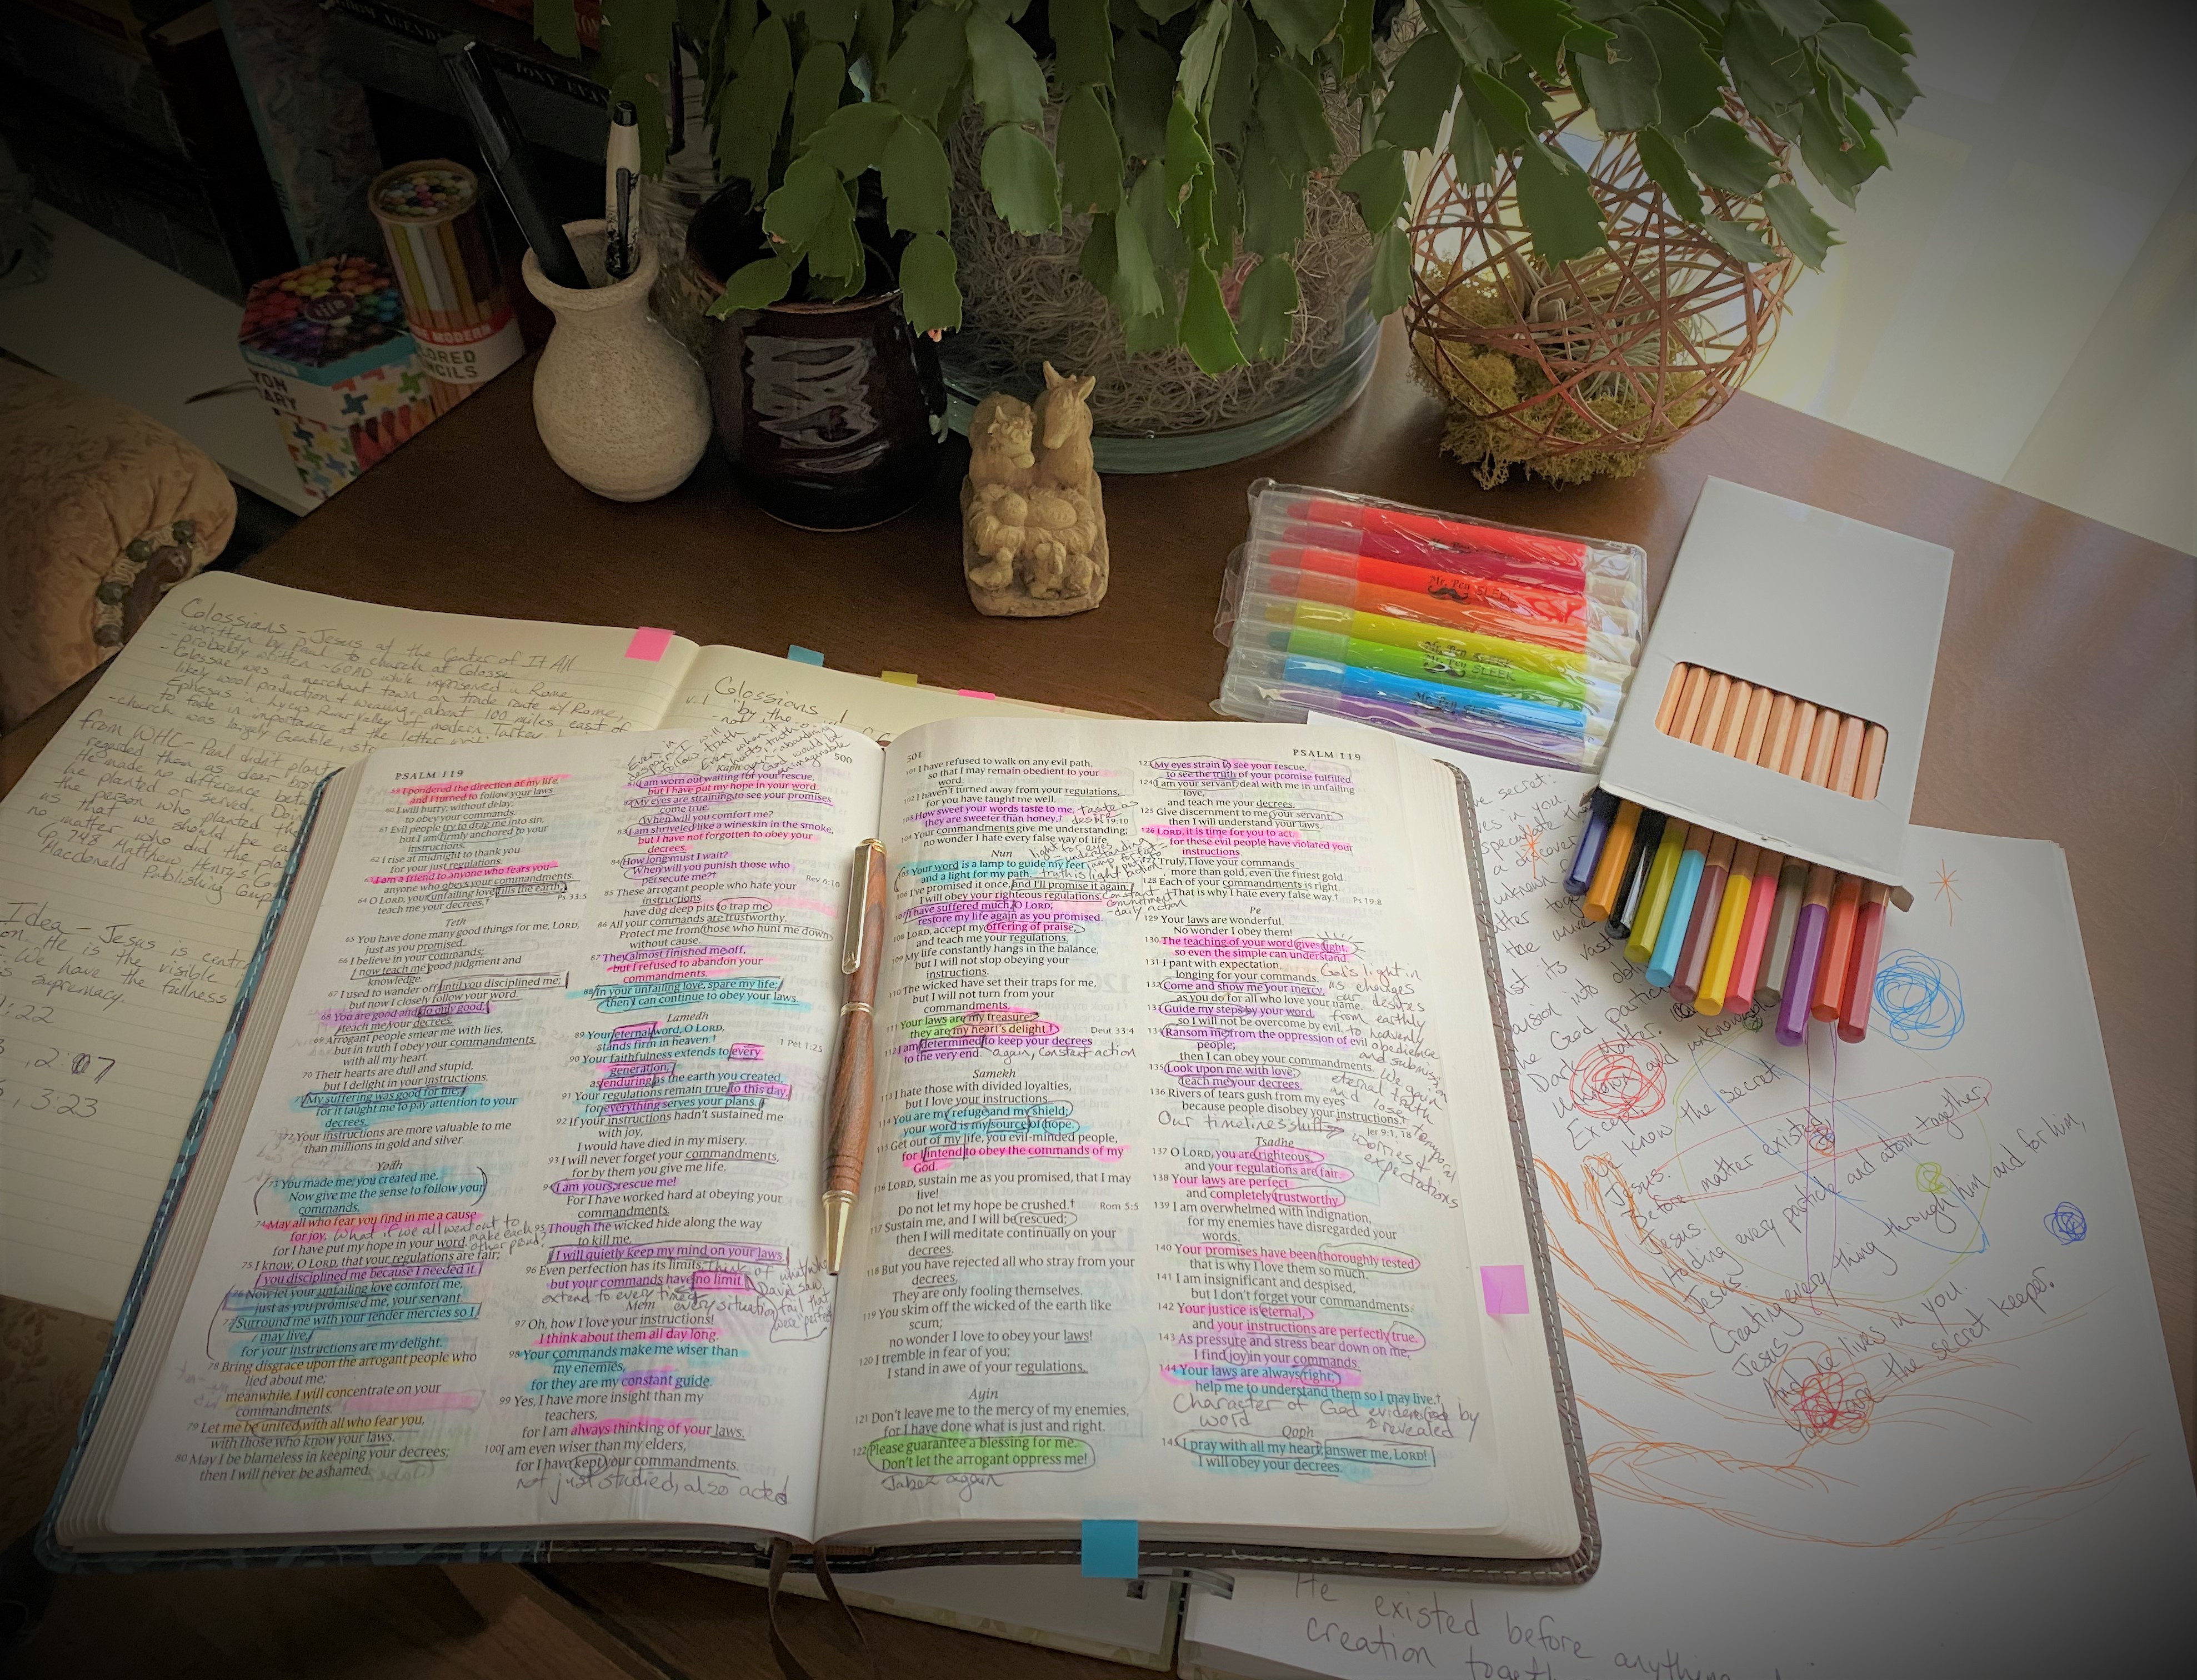 TONY EVANS
MODERN
COLORED
PENCILS
Mr. Pen SLEEK
Mr. Pen SLEEK
Mr. Pen SLEEK
Colossians - Jesus at the Center of It All
- written by Paul to church at Colosse
- probably written ~60AD while imprisoned in Rome
- Colossae was a merchant town on trade route w/ Rome,
likely wool production & weaving, about 100 miles east of
Ephesus in Lycus River valley of modern Turkey
to fade in importance at the letter
- church was largely Gentile,
from WHC - Paul didn't plant
regarded them as dear
He made no difference
he planted or served.
the person who planted the
as that we should be
no matter who did the
(p. 748 Matthew Henry's
Macdonald Publishing
Idea - Jesus is
He is the visible
We have the fullness
supremacy.
:22
, 2:07
, 3:23
Colossians 1
v. 1
"by the
PSALM 119
500
59 I pondered the direction of my life,
and I turned to follow your laws.
60 I will hurry, without delay,
to obey your commands.
61 Evil people try to drag me into sin,
but I am firmly anchored to your
instructions.
62 I rise at midnight to thank you
for your just regulations.
63 I am a friend to anyone who fears you—
anyone who obeys your commandments.
64 O LORD, your unfailing love fills the earth;
teach me your decrees.†
Ps 33:5
Teth
65 You have done many good things for me, LORD,
just as you promised.
66 I believe in your commands;
now teach me good judgment and
knowledge.
67 I used to wander off until you disciplined me;
but now I closely follow your word.
68 You are good and do only good;
teach me your decrees.
69 Arrogant people smear me with lies,
but in truth I obey your commandments
with all my heart.
70 Their hearts are dull and stupid,
but I delight in your instructions.
71 My suffering was good for me,
for it taught me to pay attention to your
decrees.
72 Your instructions are more valuable to me
than millions in gold and silver.
Yodh
73 You made me; you created me.
Now give me the sense to follow your
commands.
74 May all who fear you find in me a cause
for joy,
What if we all went out to
make each
other proud?
for I have put my hope in your word.
75 I know, O LORD, that your regulations are fair;
you disciplined me because I needed it.
76 Now let your unfailing love comfort me,
just as you promised me, your servant.
77 Surround me with your tender mercies so I
may live,
for your instructions are my delight.
78 Bring disgrace upon the arrogant people who
lied about me;
meanwhile, I will concentrate on your
commandments.
79 Let me be united with all who fear you,
with those who know your laws.
80 May I be blameless in keeping your decrees;
then I will never be ashamed.
Even in
despair I will
follow truth
Even when it
hurts, truth
Kaph
81 I am worn out waiting for your rescue,
but I have put my hope in your word.
82 My eyes are straining to see your promises
come true.
When will you comfort me?
83 I am shriveled like a wineskin in the smoke,
but I have not forgotten to obey your
decrees.
84 How long must I wait?
When will you punish those who
persecute me?†
Rev 6:10
85 These arrogant people who hate your
instructions
have dug deep pits to trap me.
86 All your commands are trustworthy.
Protect me from those who hunt me down
without cause.
87 They almost finished me off,
but I refused to abandon your
commandments.
88 In your unfailing love, spare my life;
then I can continue to obey your laws.
Lamedh
89 Your eternal word, O LORD,
stands firm in heaven.†
1 Pet 1:25
90 Your faithfulness extends to every
generation,
as enduring as the earth you created.
91 Your regulations remain true to this day,
for everything serves your plans.
92 If your instructions hadn't sustained me
with joy,
I would have died in my misery.
93 I will never forget your commandments,
for by them you give me life.
94 I am yours; rescue me!
For I have worked hard at obeying your
commandments.
95 Though the wicked hide along the way
to kill me,
I will quietly keep my mind on your laws.
96 Even perfection has its limits,
but your commands have no limit.
Think of what
David saw
extend to every time,
every situation
Mem
97 Oh, how I love your instructions!
I think about them all day long.
98 Your commands make me wiser than
my enemies,
for they are my constant guide.
99 Yes, I have more insight than my
teachers,
for I am always thinking of your laws.
100 I am even wiser than my elders,
for I have kept your commandments.
not just studied, also acted
501
PSALM 119
101 I have refused to walk on any evil path,
so that I may remain obedient to your
word.
102 I haven't turned away from your regulations,
for you have taught me well.
103 How sweet your words taste to me;
they are sweeter than honey.†
19:10
taste as
desire
104 Your commandments give me understanding;
no wonder I hate every false way of life.
Nun
105 Your word is a lamp to guide my feet
and a light for my path.
truth is light
106 I've promised it once, and I'll promise it again:
I will obey your righteous regulations.
constant
commitment
- daily action
107 I have suffered much, O LORD;
restore my life again as you promised.
108 LORD, accept my offering of praise,
and teach me your regulations.
109 My life constantly hangs in the balance,
but I will not stop obeying your
instructions.
110 The wicked have set their traps for me,
but I will not turn from your
commandments.
111 Your laws are my treasure;
they are my heart's delight.†
Deut 33:4
112 I am determined to keep your decrees
to the very end.
again, constant action
Samekh
113 I hate those with divided loyalties,
but I love your instructions.
114 You are my refuge and my shield;
your word is my source of hope.
115 Get out of my life, you evil-minded people,
for I intend to obey the commands of my
God.
116 LORD, sustain me as you promised, that I may
live!
Do not let my hope be crushed.†
Rom 5:5
117 Sustain me, and I will be rescued;
then I will meditate continually on your
decrees.
118 But you have rejected all who stray from your
decrees.
They are only fooling themselves.
119 You skim off the wicked of the earth like
scum;
no wonder I love to obey your laws!
120 I tremble in fear of you;
I stand in awe of your regulations.
Ayin
121 Don't leave me to the mercy of my enemies,
for I have done what is just and right.
122 Please guarantee a blessing for me.
Don't let the arrogant oppress me!
Jabez again
123 My eyes strain to see your rescue,
to see the truth of your promise fulfilled.
124 I am your servant; deal with me in unfailing
love,
and teach me your decrees.
125 Give discernment to me, your servant;
then I will understand your laws.
126 LORD, it is time for you to act,
for these evil people have violated your
instructions.
127 Truly, I love your commands
more than gold, even the finest gold.
128 Each of your commandments is right.
That is why I hate every false way.†
Ps 19:8
Pe
129 Your laws are wonderful.
No wonder I obey them!
130 The teaching of your word gives light,
so even the simple can understand.
131 I pant with expectation,
longing for your commands.
132 Come and show me your mercy,
as you do for all who love your name.
133 Guide my steps by your word,
so I will not be overcome by evil.
134 Ransom me from the oppression of evil
people;
then I can obey your commandments.
135 Look upon me with love;
teach me your decrees.
136 Rivers of tears gush from my eyes
because people disobey your instructions.†
Jer 9:1, 18
God's light in
us changes
our desires
from earthly
to heavenly
obedience
and submission
We gain
eternal truth
and lose
temporal
worries &
expectations
Our timeline shifts
Tsadhe
137 O LORD, you are righteous,
and your regulations are fair.
138 Your laws are perfect
and completely trustworthy.
139 I am overwhelmed with indignation,
for my enemies have disregarded your
words.
140 Your promises have been thoroughly tested;
that is why I love them so much.
141 I am insignificant and despised,
but I don't forget your commandments.
142 Your justice is eternal,
and your instructions are perfectly true.
143 As pressure and stress bear down on me,
I find joy in your commands.
144 Your laws are always right;
help me to understand them so I may live.†
Character of God evidenced by
word
& revealed
Qoph
145 I pray with all my heart; answer me, LORD!
I will obey your decrees.
secret:
lives in you.
speculate
discover
unknown
matter
the
its vast
into
the God particle
Dark Matter.
Unknown and unknowable
Except,
we know the secret.
Jesus.
Before matter existed
Jesus.
Holding every particle and atom together,
Jesus.
Creating every thing through him and for him,
Jesus
And he lives in you.
You are the secret keeper.
He existed before anything
creation together